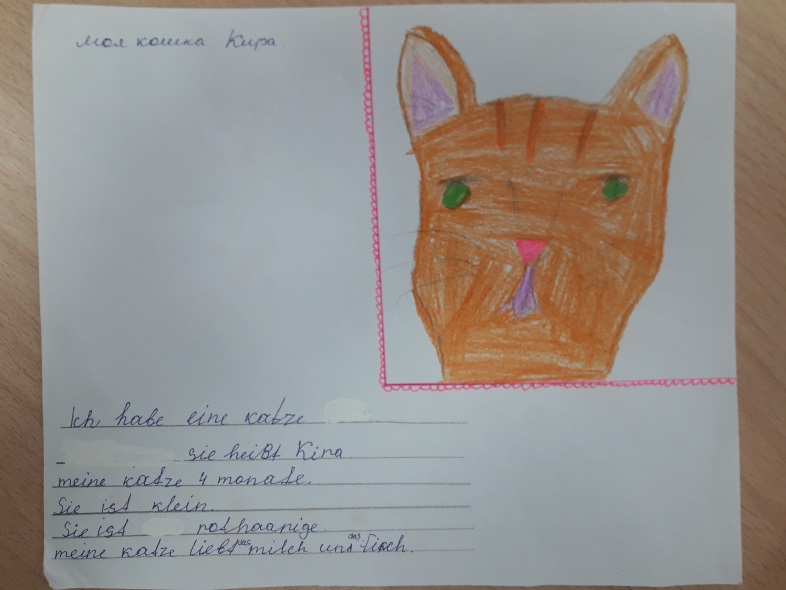 Моя кошка Кира.
Ich habe eine katze
sie heißt Kira
meine katze 4 monate.
Sie ist klein.
Sie ist rothaarige.
meine katze liebt milch und das Fisch.